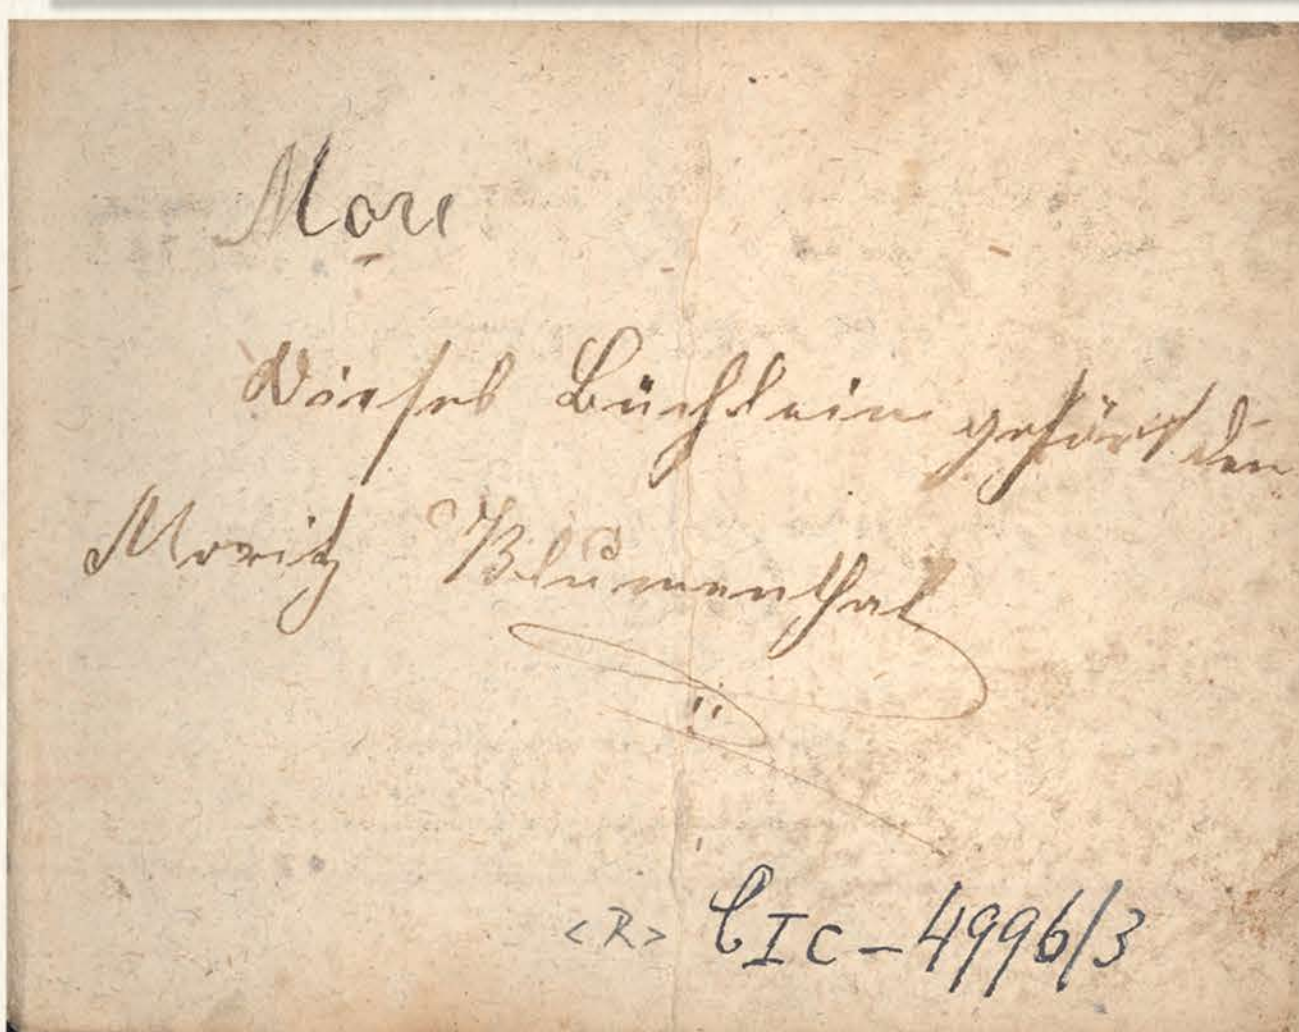 More
Dieses Büchlein gehört den
Moritz Blumenthal
<R> CIc-4996/3